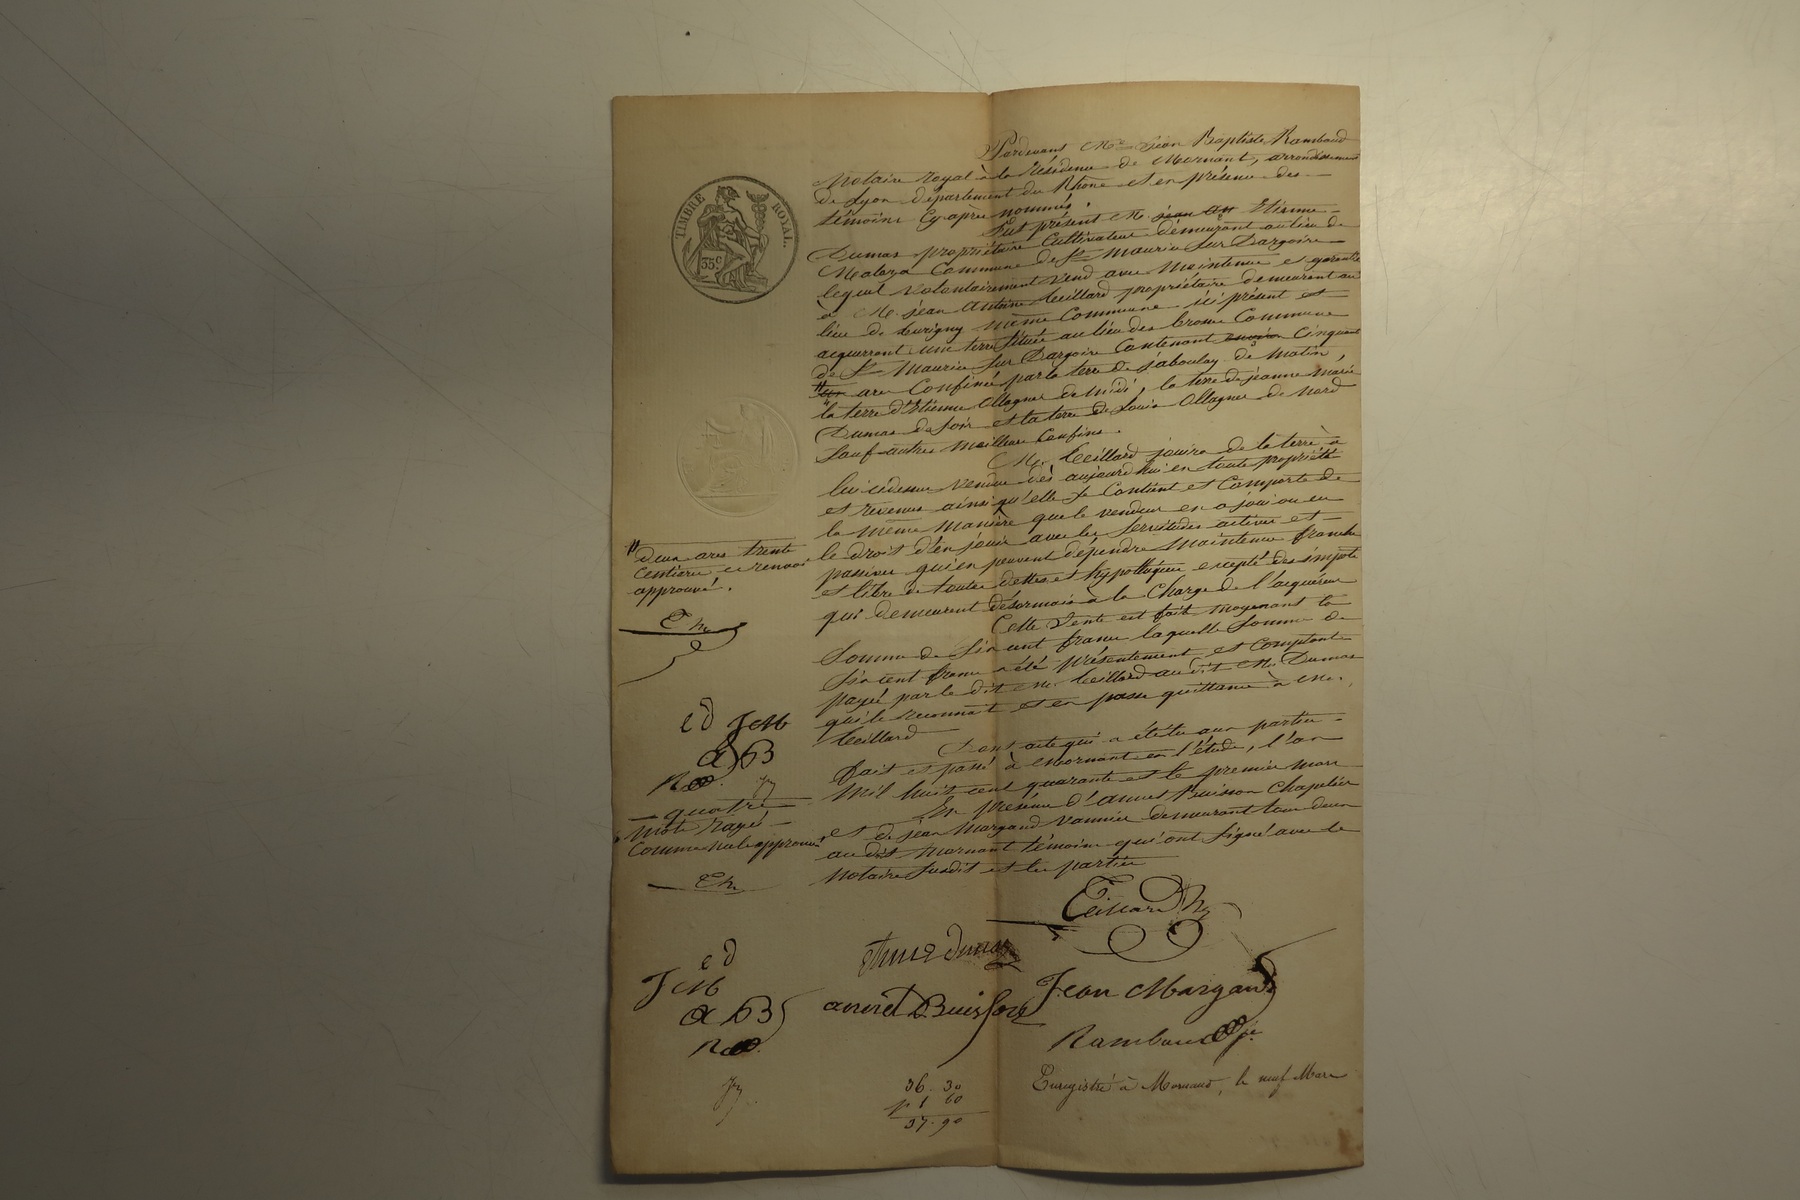 TIMBRE ROYAL.
35c
Pardevant Me Jean Baptiste Rambaud
Notaire royal à la Résidence de Mornant, arrondissement
de Lyon département du Rhône et en présence des
témoins cy-après nommés.
Fut présent M. Etienne
Dumas propriétaire Cultivateur demeurant au lieu de
Commune de St Maurice sur Dargoire
lequel volontairement vend avec Maintenue et garantie
à M. Jean Antoine Teillard propriétaire demeurant au
lieu de même Commune ici présent et
acquerrant une terre située au lieu des Commune
de St Maurice sur Dargoire Contenant environ Cinquante
are Confinée par la terre de de matin,
la terre d'Etienne Ollagner de midi, la terre de jeanne marie
Dumas de soir et la terre de Louis Ollagner de nord
sauf autres meilleurs Confins.
Mr Teillard jouira de la terre à
lui cidessus vendue dès aujourd'hui en toute propriété
et revenus ainsi qu'elle se Contient et Comporte de
la même manière que le vendeur en a joui ou eu
le droit d'en jouir avec les servitudes actives et
passives qui en peuvent dépendre Maintenue franche
et libre de toutes dettes et hypothèques excepté des impots
qui demeurent désormais à la Charge de l'acquéreur
Cette vente est fait moyenant la
Somme de Six cent francs laquelle Somme de
Six cent francs a été présentement et Comptant
payé par le dit Mr Teillard au dit Mr Dumas
qui le reconnait et en passe quittance à Mr.
Teillard
Dont acte qui a été lu aux parties
Fait et passé à Mornant en l'étude, l'an
Mil huit cent quarante et le premier mars
En présence d'annet Buisson Chapelier
et de jean Margand vannier demeurant tous deux
au dit Mornant témoins qui ont signé avec le
Notaire susdit et les parties
deux ares trente
Centiares ce renvoi
approuvé.
ED JCM
AB
quatre
mots rayé
Comme nuls approuvé
ED
JCM
AB
Teillard
Etiene Dumas
annet Buisson
Jean Margand
Rambaud
36.30
1 60
37.90
Enregistré à Mornant, le neuf Mars